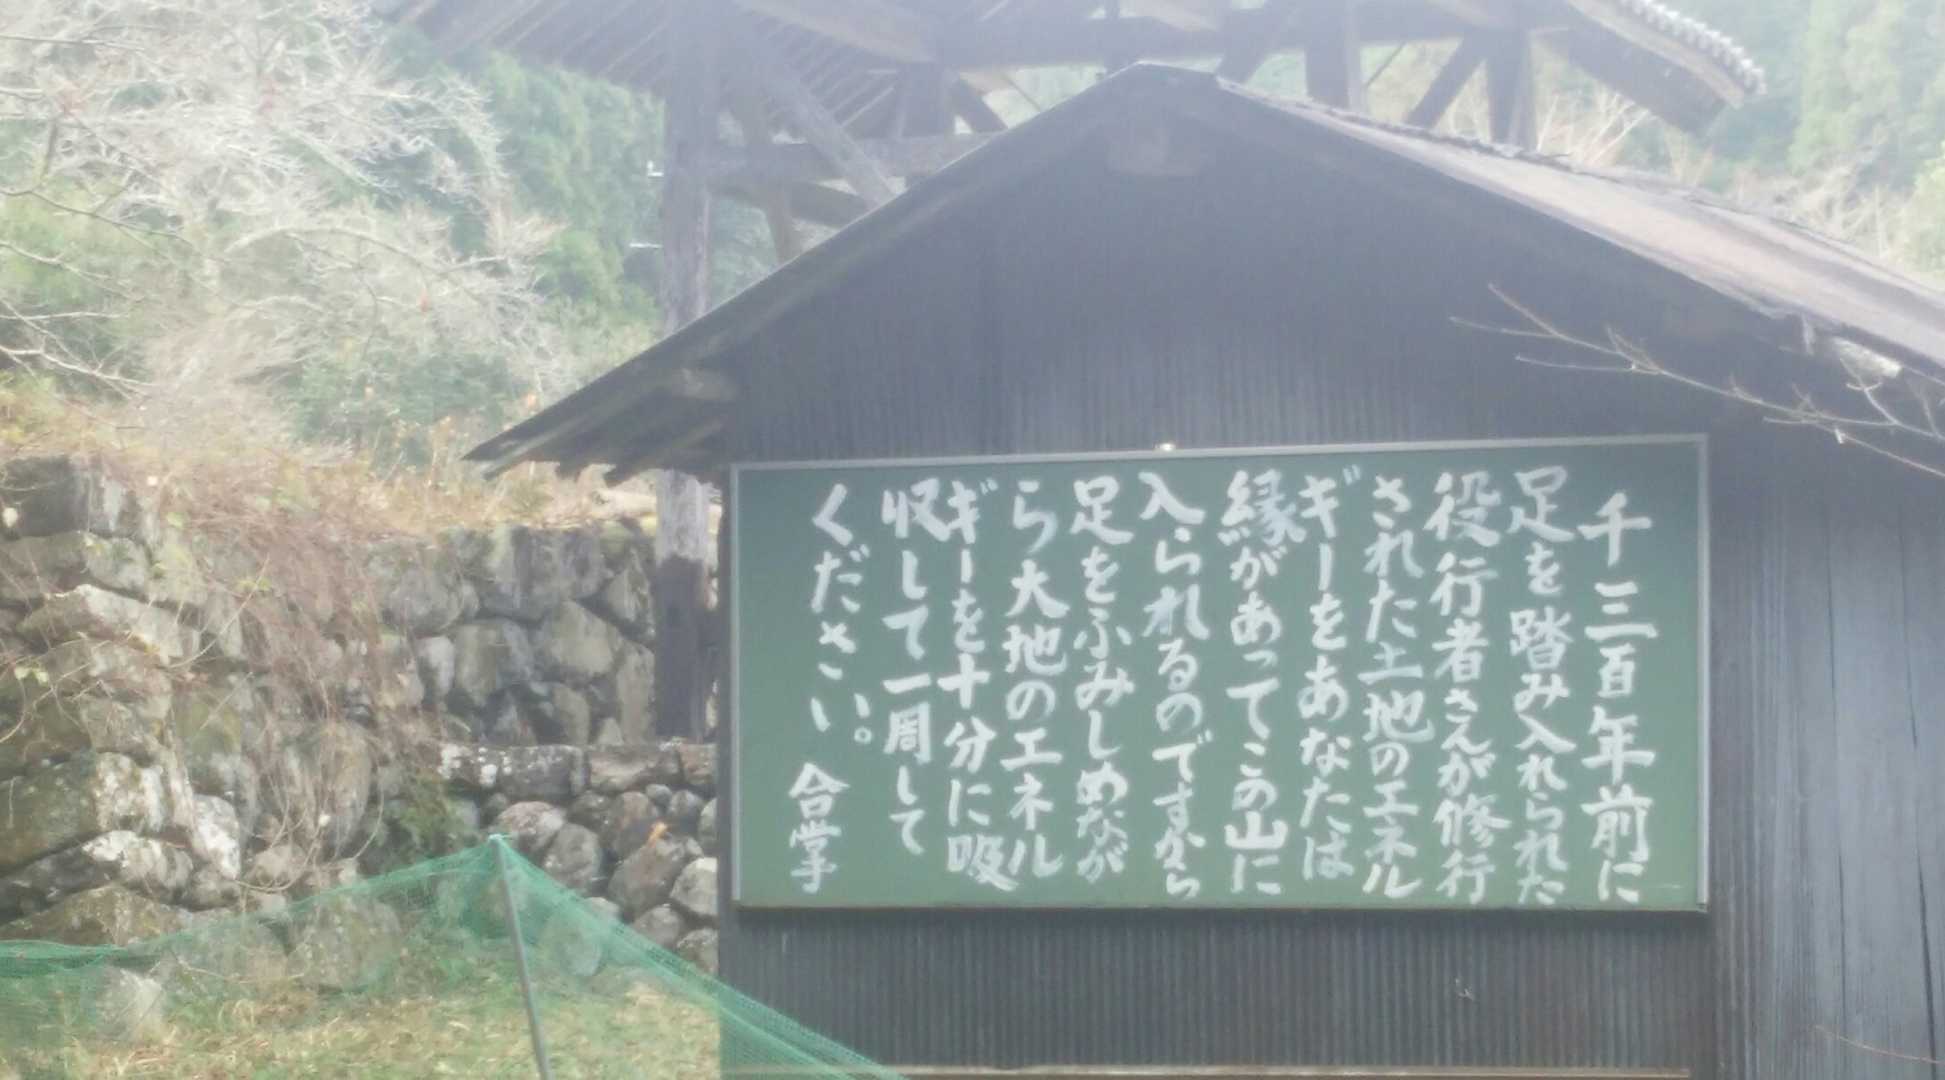 千三百年前に
足を踏み入れられた
役行者さんが修行
された土地のエネル
ギーをあなたは
縁があってこの山に
入られるのですから
足をふみしめなが
ら大地のエネル
ギーを十分に吸
収して一周して
ください。 合掌